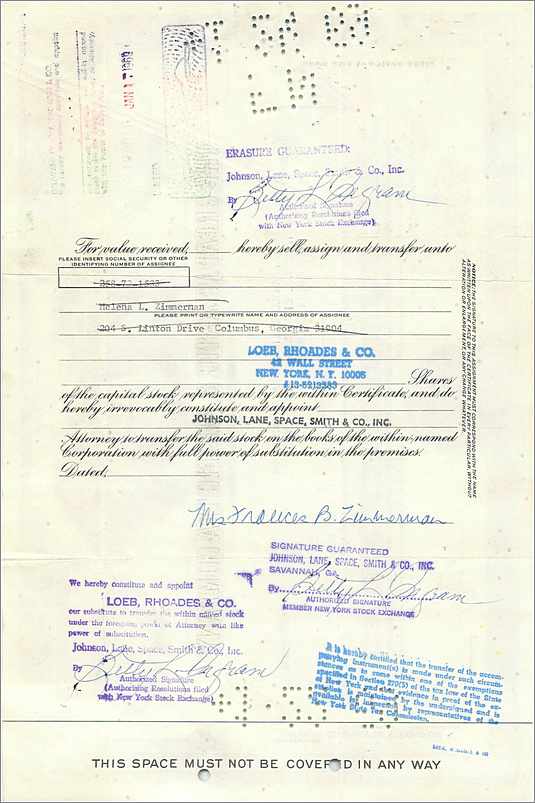 ERASURE GUARANTEED:
Johnson, Lane, Space, Smith & Co., Inc.
By
Authorized Signature
(Authorizing Resolutions filed
with New York Stock Exchange)
For value received, hereby sell, assign and transfer unto
PLEASE INSERT SOCIAL SECURITY OR OTHER
IDENTIFYING NUMBER OF ASSIGNEE
Helena L. Zimmerman
PLEASE PRINT OR TYPEWRITE NAME AND ADDRESS OF ASSIGNEE
204 S. Linton Drive Columbus, Georgia 31904
LOEB, RHOADES & CO.
42 WALL STREET
NEW YORK, N. Y. 10005
Shares
of the capital stock represented by the within Certificate, and do
hereby irrevocably constitute and appoint
JOHNSON, LANE, SPACE, SMITH & CO., INC.
Attorney to transfer the said stock on the books of the within named
Corporation with full power of substitution in the premises.
Dated,
NOTICE: THE SIGNATURE TO THIS ASSIGNMENT MUST CORRESPOND WITH THE NAME
AS WRITTEN UPON THE FACE OF THE CERTIFICATE IN EVERY PARTICULAR, WITHOUT
ALTERATION OR ENLARGEMENT OR ANY CHANGE WHATEVER.
Mrs Frances B. Zimmerman
SIGNATURE GUARANTEED
JOHNSON, LANE, SPACE, SMITH & CO., INC.
SAVANNAH, GA.
By
AUTHORIZED SIGNATURE
MEMBER NEW YORK STOCK EXCHANGE
We hereby constitute and appoint
LOEB, RHOADES & CO.
our substitute to transfer the within named stock
under the foregoing power of Attorney with like
power of substitution.
Johnson, Lane, Space, Smith & Co., Inc.
By
Authorized Signature
(Authorizing Resolutions filed
with New York Stock Exchange)
It is hereby certified that the transfer of the accom-
panying instrument(s) is made under such circum-
stances as to come within one of the exemptions
specified in Section 270(5) of the tax law of the State
of New York and that evidence in proof of the ex-
emption is maintained by the undersigned and is
available for inspection by representatives of the
New York State Tax Commission.
THIS SPACE MUST NOT BE COVERED IN ANY WAY